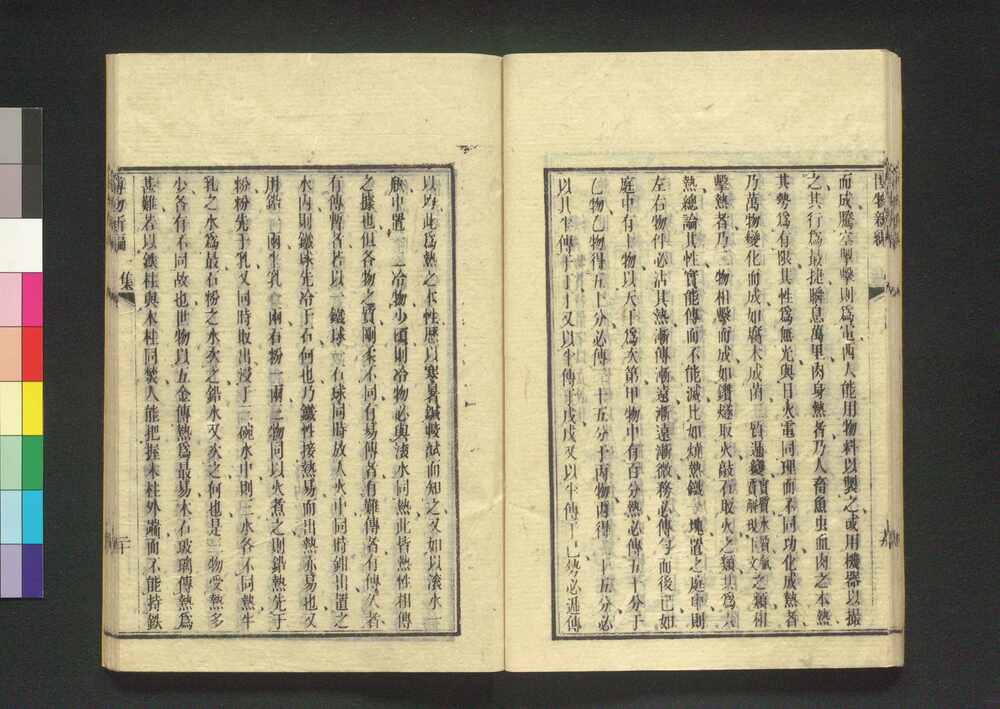 博物新編
而成騰空擊擊則爲電西人能用物料以製之或用機器以撮
之其行爲最捷瞬息萬里肉身熱者乃人畜魚虫血肉之本熱
其勢爲有限其性爲無光與日火電同理而不同功化成熱者
乃萬物變化而成如腐木成菌三質遞變實質水質氣質解現下文之類相
擊熱者乃二物相擊而成如鑽燧取火敲石取火之類其爲
熱總論其性實能傳而不能滅比如燒熱鐵一塊置之庭中則
左右物件必沾其熱漸傳漸遠漸遠漸微務必傳勻而後已如
庭中有十物以天干爲次第甲物中有百分熱必傳五十分于
乙物乙物得五十分必傳二十五分于丙物丙得二十五分必
以其半傳于丁丁又以半傳于戊戊又以半傳于己熱必遞傳
以均此爲熱之本性歷以寒暑鍼較試而知之又如以滾水一
瓶中置一二冷物少頃則冷物必與滾水同熱此皆熱性相傳
之據也但各物之質剛柔不同有易傳者有難傳者有傳久者
有傳暫者若以一鐵球一石球同時放入火中同時鉗出置之
水內則鐵球先冷于石何也乃鐵性接熱易而出熱亦易也又
用鉛一兩牛乳一兩石粉一兩三物同以火煮之則鉛熱先于
粉粉先于乳又同時取出浸于三碗水中則三水各不同熱牛
乳之水爲最石粉之水次之鉛水又次之何也是三物受熱多
少各有不同故也世物以五金傳熱爲最易木石玻璃傳熱爲
甚難若以鐵柱與木柱同焚人能把握木柱外端而不能持鉄
博物新編
集
二十